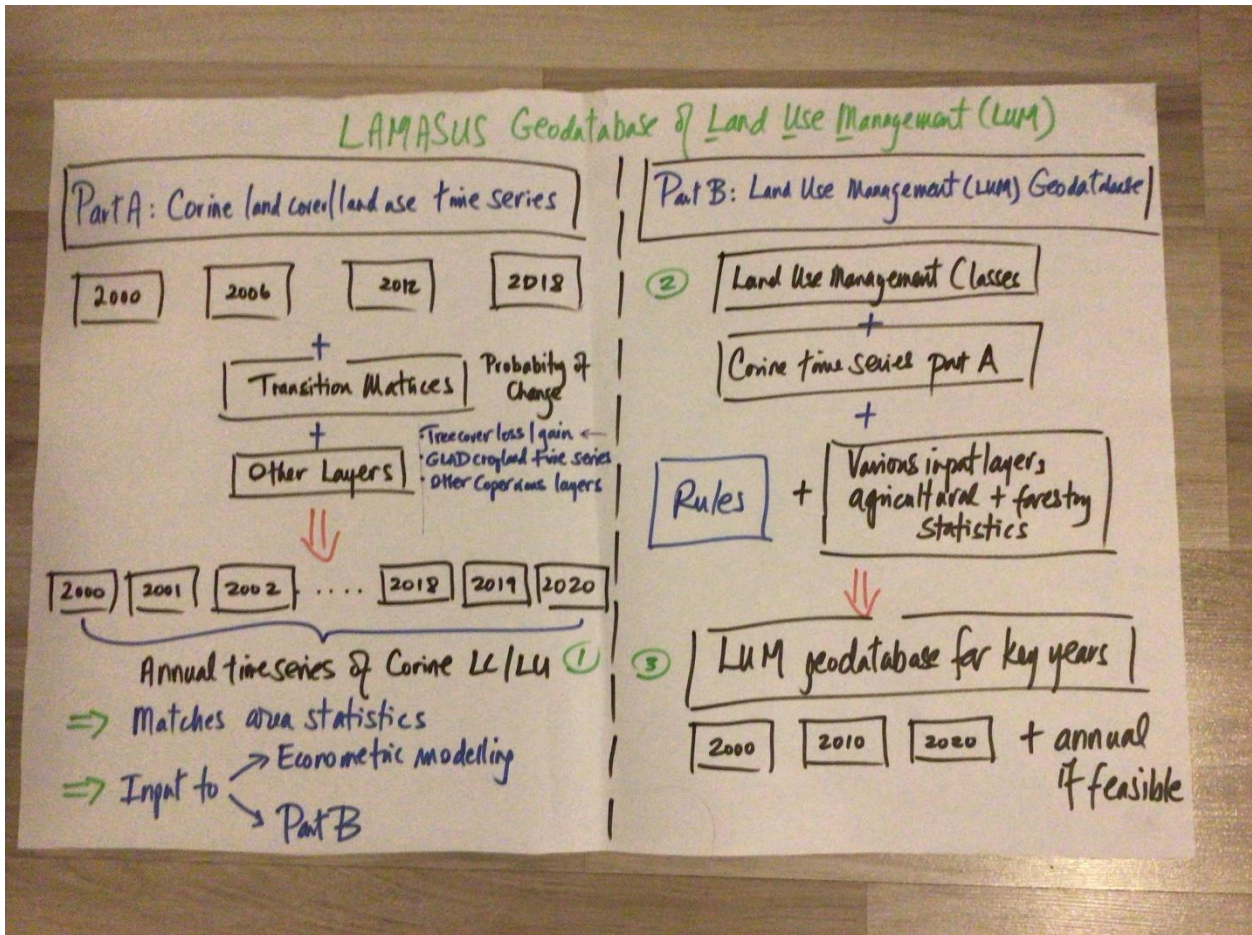 LAMASUS Geodatabase of Land Use Management (LUM)
Part A: Corine land cover/land use time series
2000 2006 2012 2018
+
Transition Matrices
Probability of
Change
+
Other Layers
• Tree cover loss/gain ←
• GLAD cropland time series
• Other Copernicus layers
⇓
2000 2001 2002 .... 2018 2019 2020
Annual time series of Corine LC/LU ①
⇒ Matches area statistics
⇒ Input to
→ Econometric modelling
→ Part B
Part B: Land Use Management (LUM) Geodatabase
② Land Use Management Classes
+
Corine time series part A
+
Rules +
Various input layers
agricultural + forestry
statistics
⇓
③ LUM geodatabase for key years
2000 2010 2020 + annual
if feasible